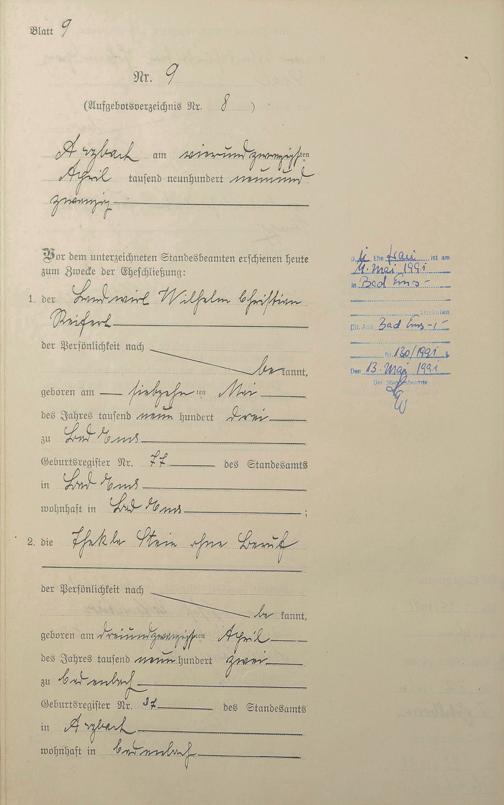 Blatt 9
Nr. 9
(Aufgebotsverzeichnis Nr. 8)
Arzbach am vierundzwanzigsten
April tausend neunhundert neunund
zwanzig
Vor dem unterzeichneten Standesbeamten erschienen heute
zum Zwecke der Eheschließung:
1. der Landwirt Wilhelm Christian
Reifert
der Persönlichkeit nach
be kannt,
geboren am siebzehnten Mai
des Jahres tausend neun hundert drei
zu Bad Ems
Geburtsregister Nr. 77 des Standesamts
in Bad Ems
wohnhaft in Bad Ems ;
2. die Thekla Stein ohne Beruf
der Persönlichkeit nach
be kannt,
geboren am dreiundzwanzigsten April
des Jahres tausend neun hundert zwei
zu
Geburtsregister Nr. 37 des Standesamts
in Arzbach
wohnhaft in
Ehefrau ist am
11. Mai 1991
in Bad Ems
verstorben
Bad Ems
Nr. 130/1991
Den 13. Mai 1991
Der Standesbeamte